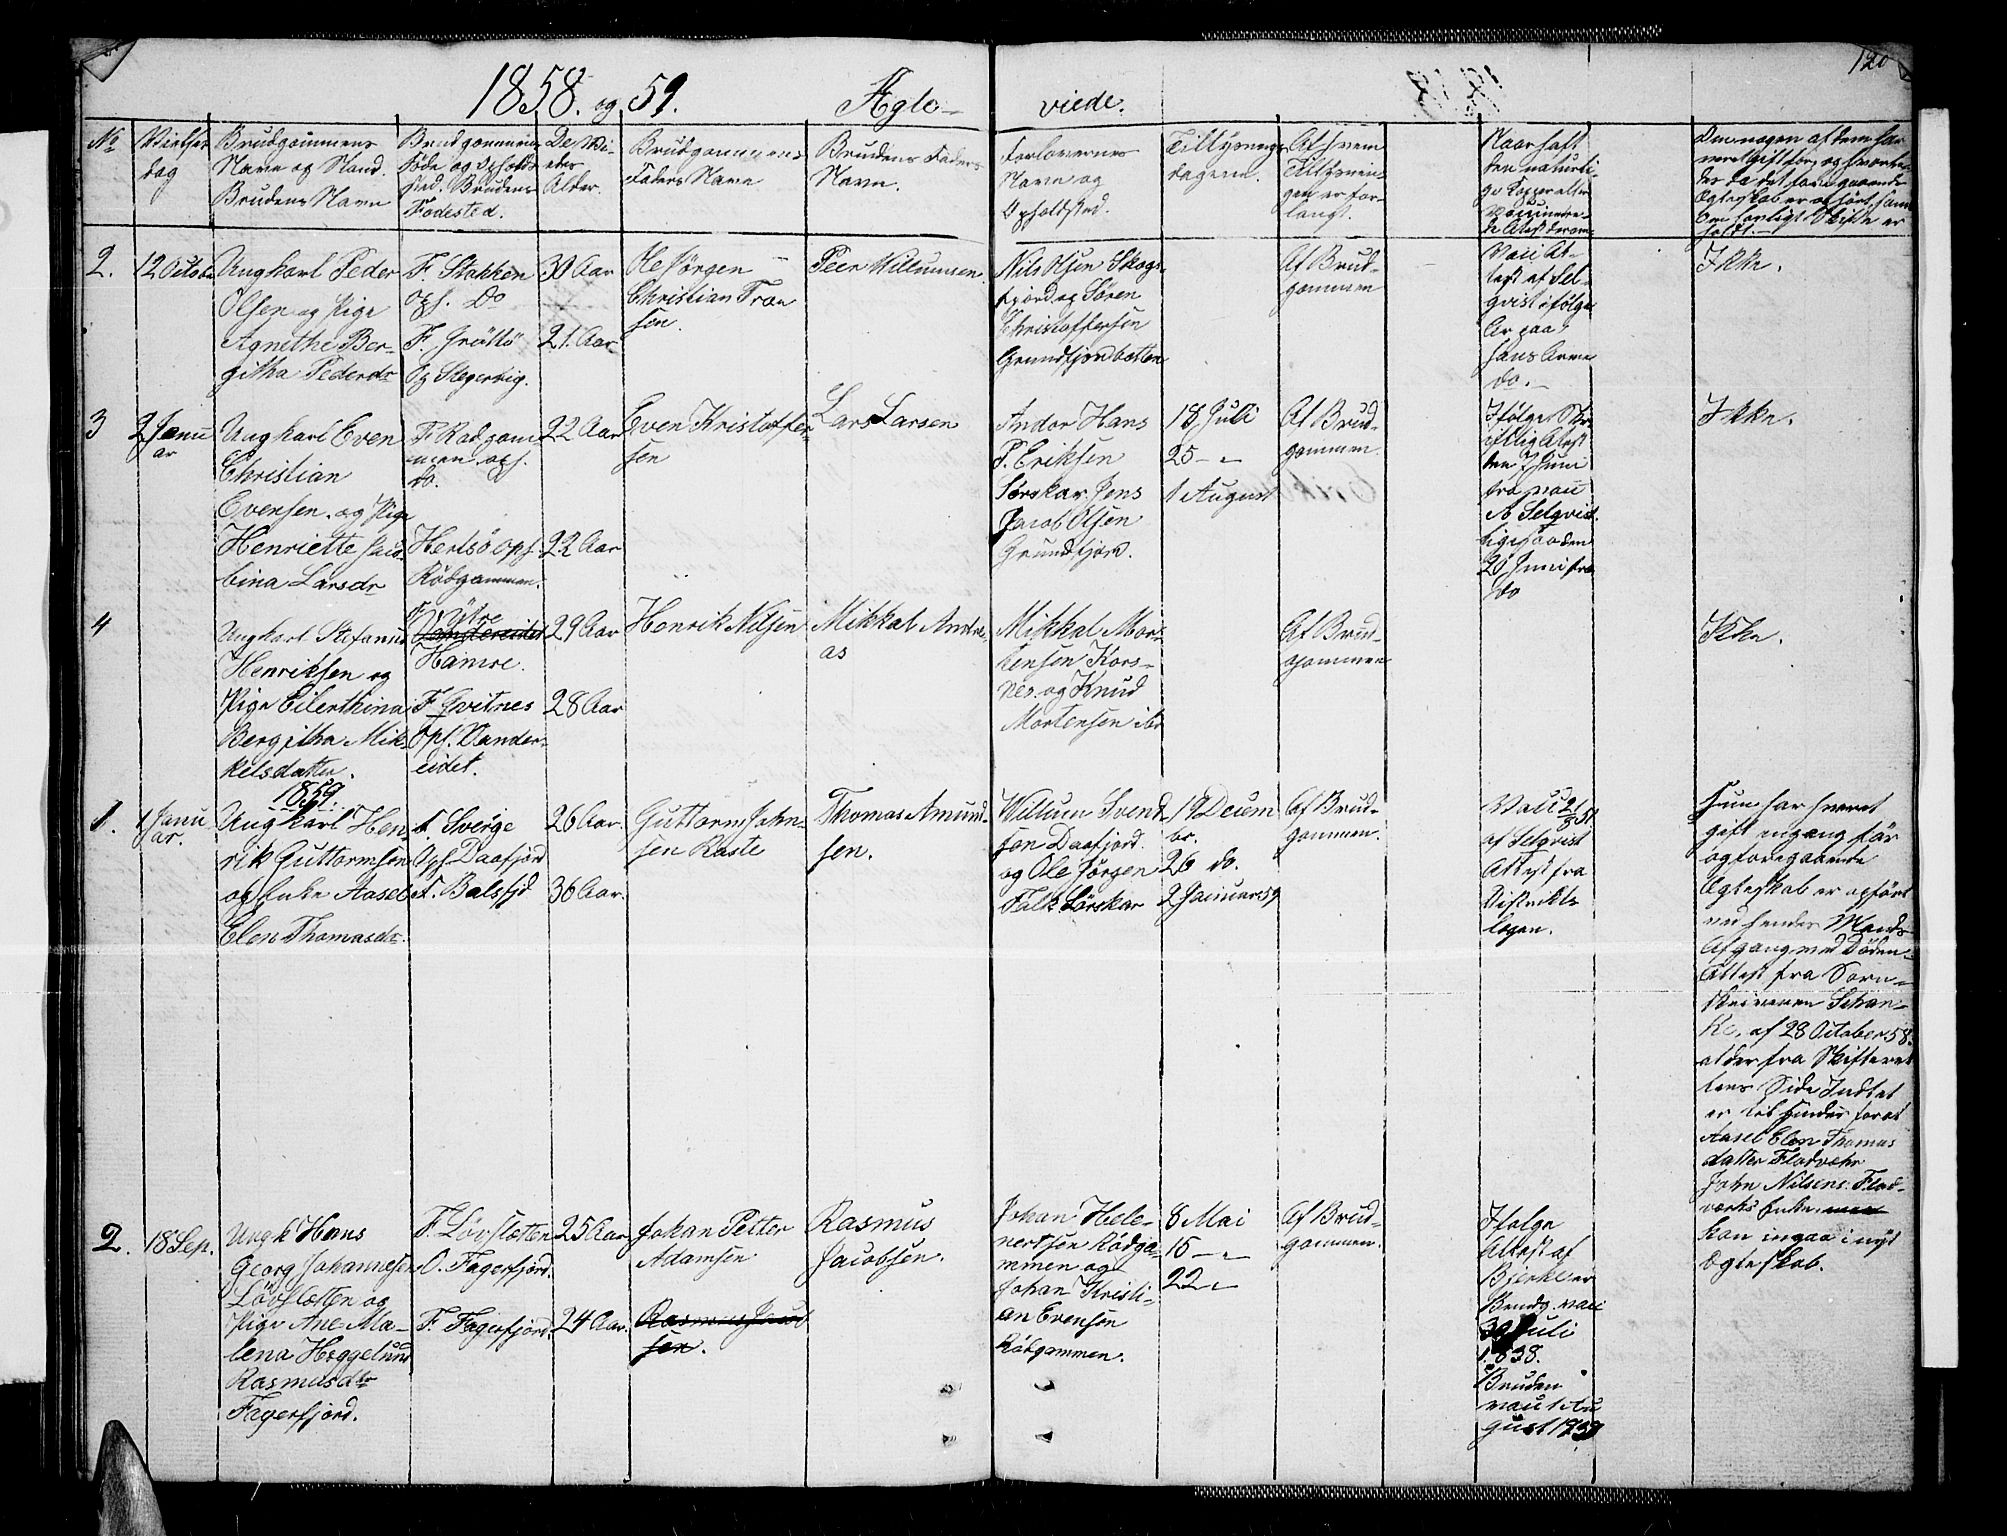 120
1858. og 59. Ægte-
viede.
No
Vielses
dag
Brudgommens
Navn og Stand.
Brudens Navn
Brudgommens
Føde og Opholds
sted. Brudens
Fødested.
De Vi-
edes
Alder.
Brudgommens
Faders Navn
Brudens Faders
Navn.
Forlovernes
Navn og
Opholdsted.
Tillysnings
dagene.
Af hvem
Tillysnin-
gen er for-
langt.
Naar haft
den naturli-
ge Kopper eller
Vaccinere-
de Attest derom
Om nogen af dem har
været gift før, og hvorle-
des da det foregaaende
Ægteskab er ophørt, samt
Om lovligt Skifte er
holdt.
2.
12 October
Ungkarl Peder
Olsen og Pige
Agnethe Ber-
githa Pedersdr
F. Stakken
Oph. Do
F. Grøttø
Og Slegervig.
30 Aar
21. Aar
Ole Jørgen
Christian Tran
sen.
Peer Willumsen
Nils Olsen Skogs-
fjord og Sören
Christoffersen
Grundfjordbotten
Af Brud-
gommen
Vacc At-
test af Sel-
qvist ifølge
Ar paa
hans Arme
do.
Ikke.
3
2 Janu
ar
Ungkarl Even
Christian
Evensen. og Pige
Henriette Jaco-
bina Larsdr
F. Rødgam-
men oph.
do.
Hertsö Oph.
Rödgammen.
22 Aar
22 Aar
Even Kristoffer-
sen
Lars Larsen
Andor Hans
P. Eriksen
Sörskar. Jens
Jacob Olsen
Grundfjord.
18 Juli
25 - "
1 August
Af Brud-
gommen.
Ifølge Skr-
iftlig Attest
den 7 Juni
fra vacc
A Selqvist.
ligesaa den
20 Juni fra
do
Ikke.
4
Ungkarl Stefanus
Henriksen og
Pige Eilerthina
Bergitha Mik-
kelsdatter.
F. Ytre
Hamre.
F Hvitnes
Oph. Vander-
eidet.
29 Aar
28 Aar
Henrik Nilsen
Mikkal Andre-
as
Mikkal Mor-
tensen Kors-
nes. og Knud
Mortensen ibd
Af Brud-
gommen
Ikke.
1859.
1.
1 Janu
ar.
Ungkarl Hen-
rik Guttormsen
og Enke Aasel
Elen Thomasdr.
f. Sverge
Oph Daafjord
F. Balsfjd
26 Aar.
36 Aar.
Guttorm John-
sen Raste
Thomas Amund-
sen.
Willum Svend-
sen Daafjord.
og Ole Jørgen
Falk Sörskar
19 Decem
br.
26 do.
2 Januar 59
Af Brud-
gommen.
Vacc 21/8 51
af Selqvist
Attest fra
Distrikts
lægen.
Hun har været
gift engang før
og foregaaende
Ægteskab er ophørt
ved hendes Mands
Afgang ved Døden.
Attest fra Soren-
skriveren Schan-
ke, af 28 October 58.
at der fra Skifteret
tens Side Indtet
er til Hinder for at
Aasel Elen Thomas
datter Flodværk
John Nilsens Flod-
værks Enke
kan ingaa i nyt
Ægteskab.
2.
18 Sep.
Ungk Hans
Georg Johannesen
Lövslætten og
Pige Ane Ma-
lena Heggelund
Rasmusdtr
Fagerfjord.
F. Lövslætten
O. Fagerfjord.
F. Fagerfjord
25 Aar
24 Aar.
Johan Petter
Adamsen
Rasmus Jacob
sen.
Rasmus
Jacobsen.
Johan Hele-
nertsen Rödga-
mmen og
Johan Kristi-
an Evensen
Rödgammen.
8 Mai
15 - "
22 - "
Af Brud-
gommen.
Ifølge
Attest af
Bjerke er
Brudg. vacc
30 Juli
1838.
Bruden
vacc 1 Au
gust 1839